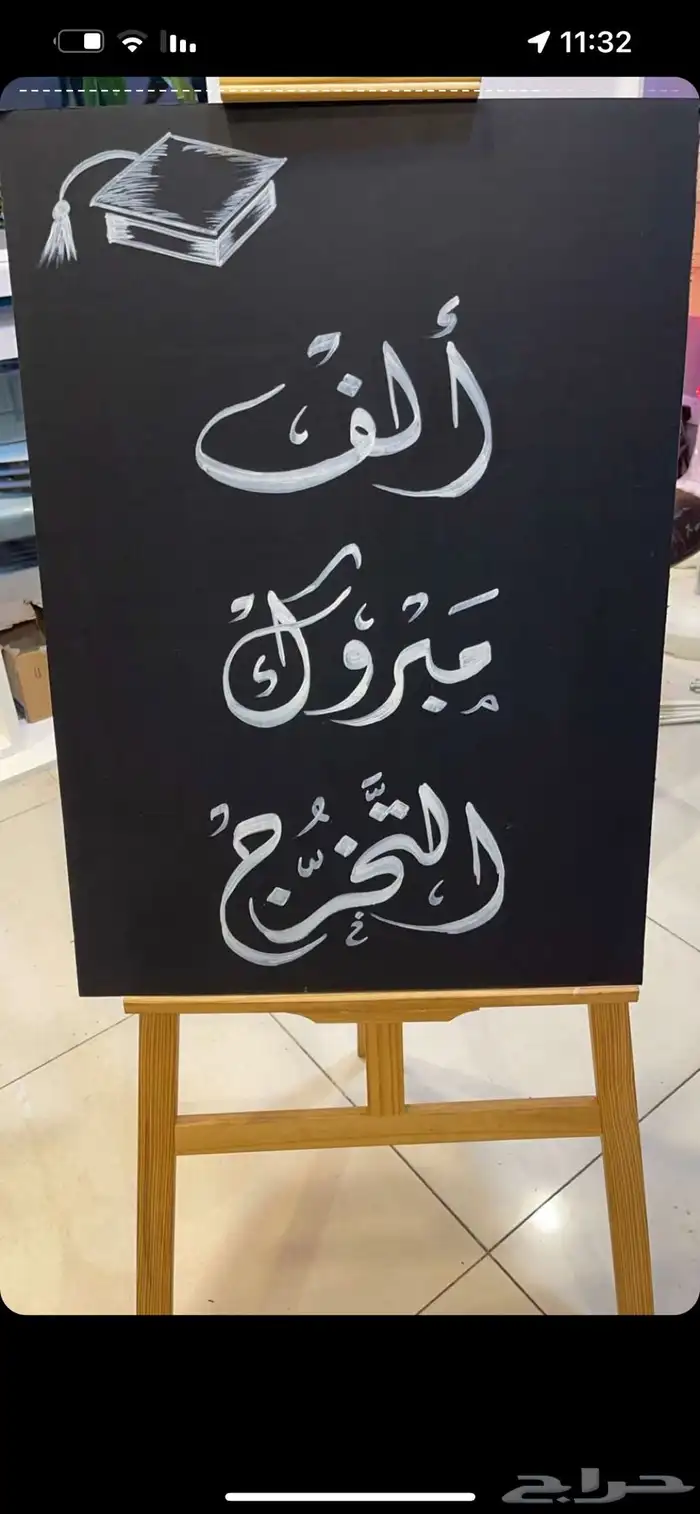 11:32
ألفْ
مَبْروك
التَّخرُّجْ
حراج